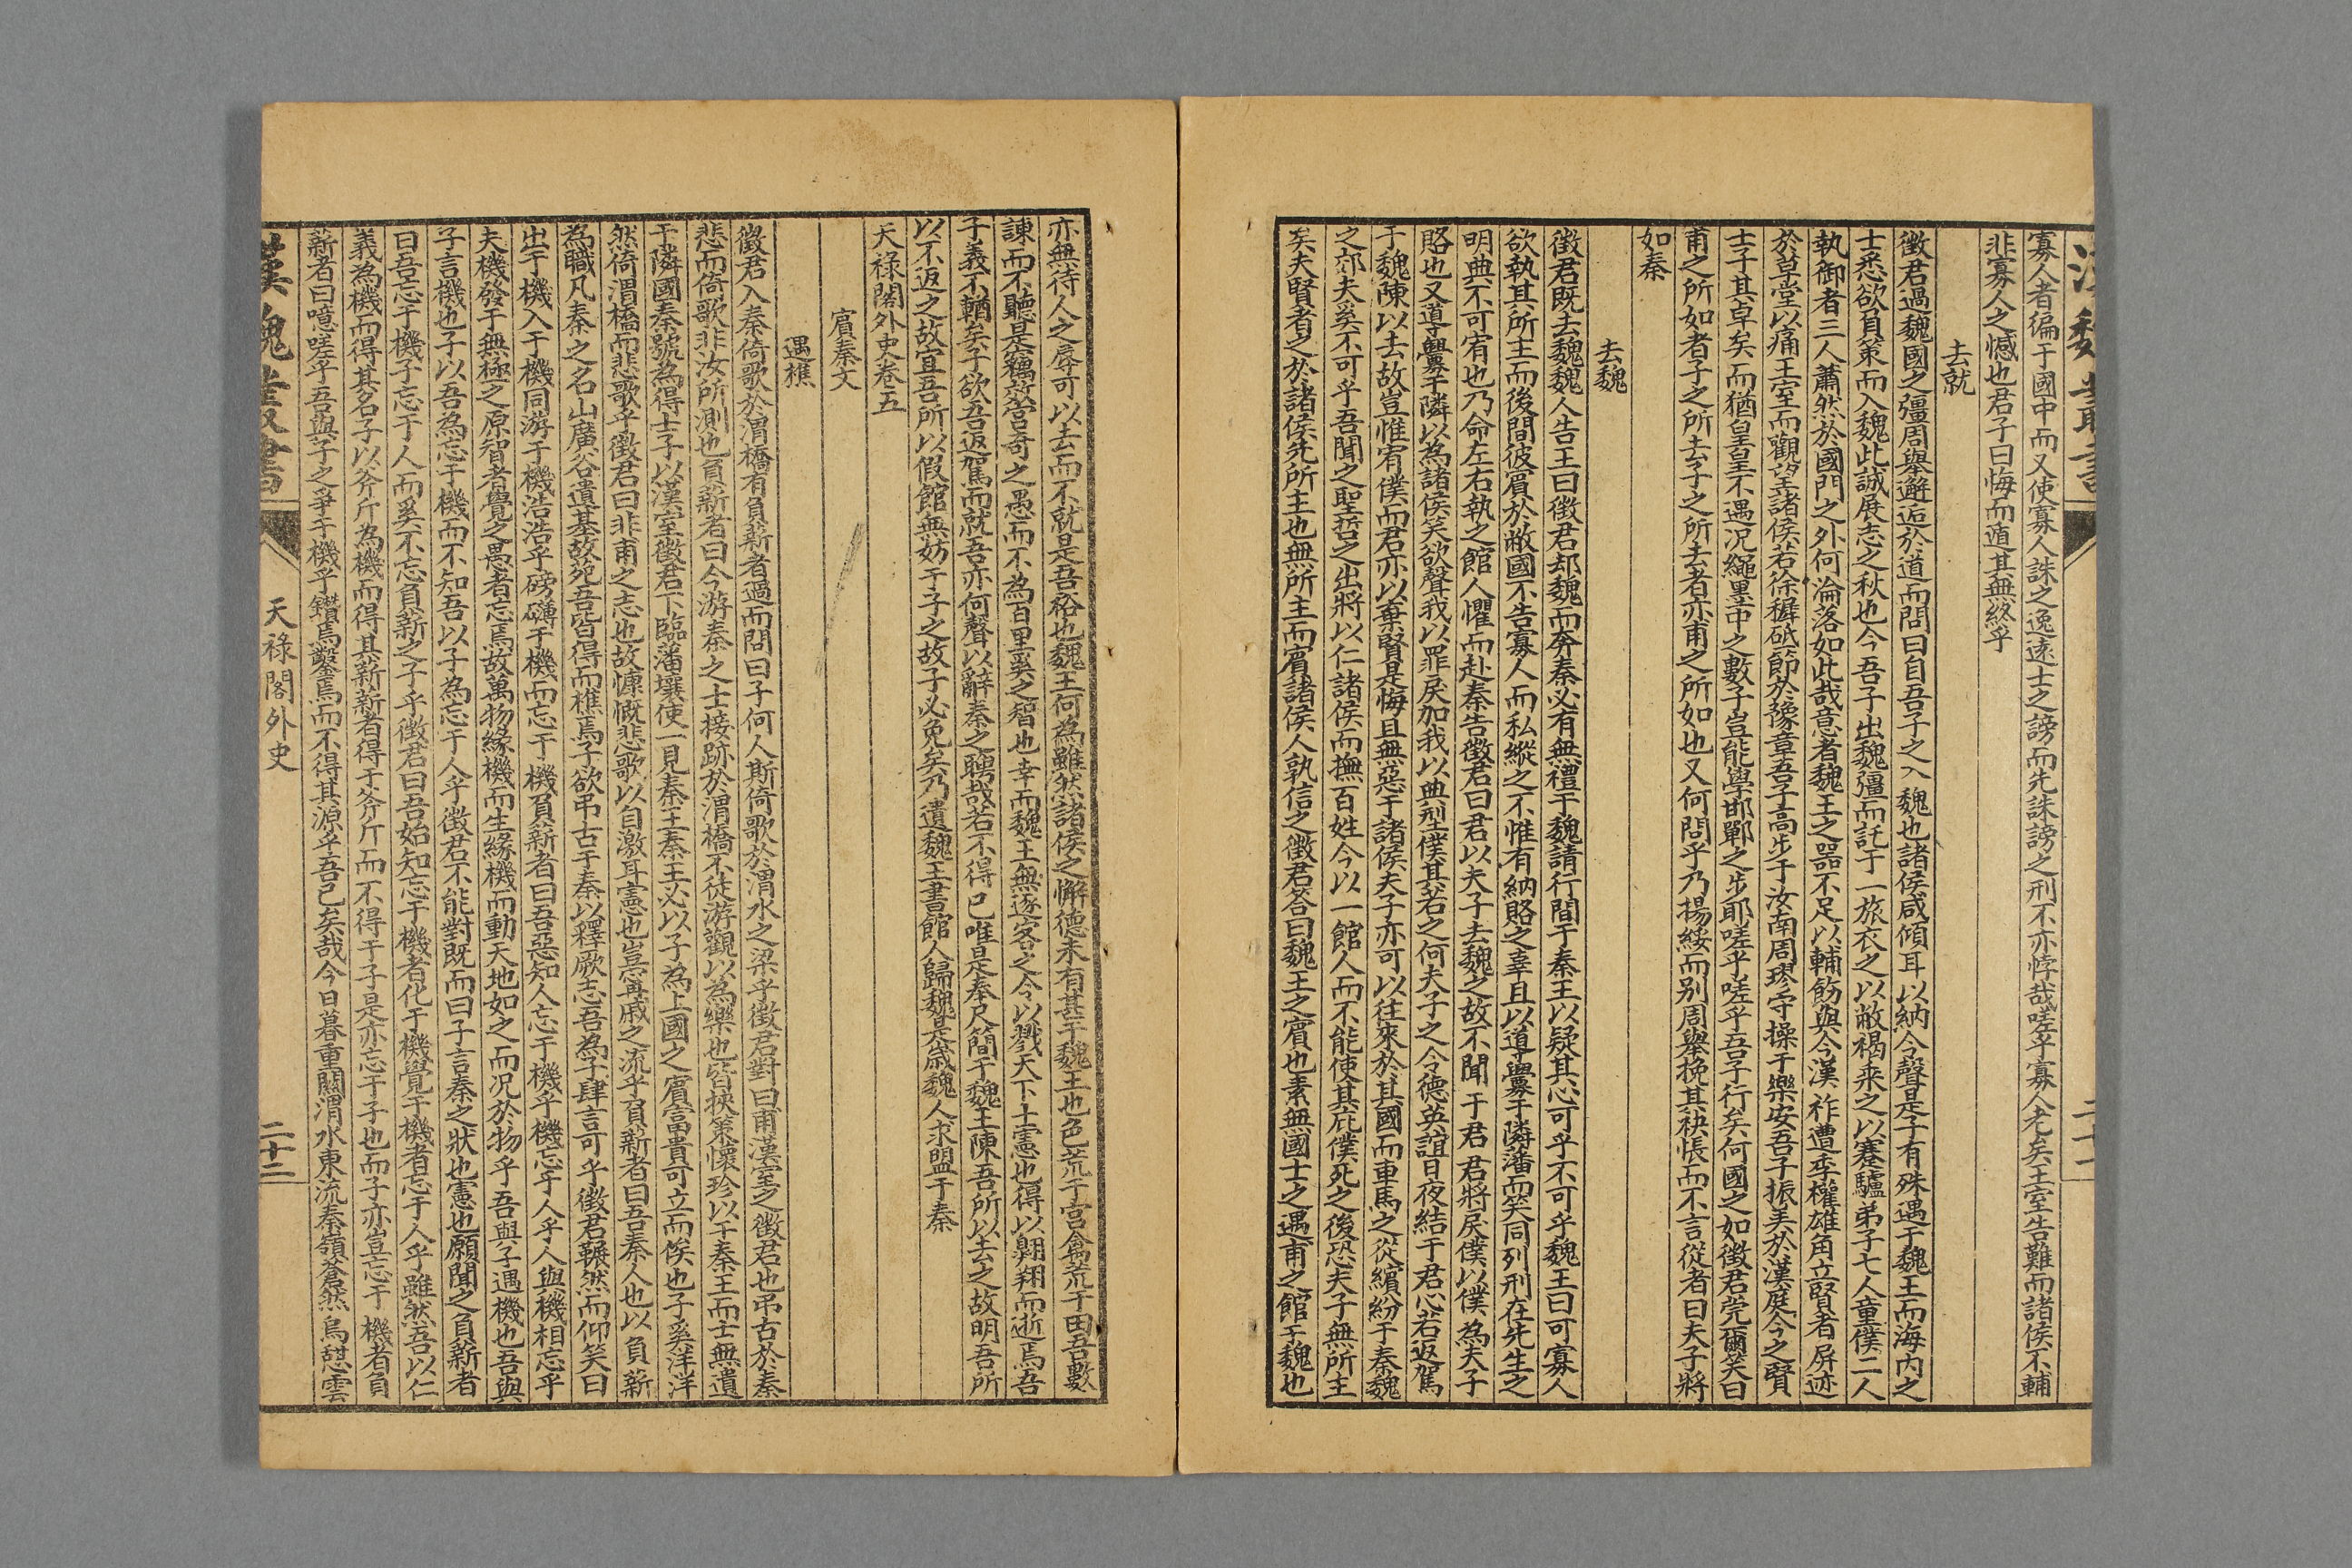 寡人者徧于國中而又使寡人誅之逸遠士之謗而先誅謗之刑不亦悖哉嗟乎寡人老矣王室告難而諸侯不輔
非寡人之憾也君子曰悔而遁其無終乎
去就
徵君過魏國之彊周舉邂逅於道而問曰自吾子之入魏也諸侯咸傾耳以納令聲是子有殊遇于魏王而海內之
士悉欲負策而入魏此誠展志之秋也今吾子出魏彊而託于一旅衣之以敝褐乘之以蹇驢弟子七人童僕二人
執御者三人蕭然於國門之外何淪落如此哉意者魏王之器不足以輔飭與今漢祚遭季權雄角立賢者屏迹
於草堂以痛王室而觀望諸侯若徐穉砥節於豫章吾子高步于汝南周璆守操于樂安吾子振美於漢庭今之賢
士子其卓矣而猶皇皇不遇况繩墨中之數子豈能學邯鄲之步耶嗟乎嗟乎吾子行矣何國之如徵君莞爾笑曰
甫之所如者子之所去子之所去者亦甫之所如也又何問乎乃揚綏而别周舉挽其袂悵而不言從者曰夫子將
如秦
去魏
徵君既去魏魏人告王曰徵君却魏而奔秦必有無禮于魏請行間于秦王以疑其心可乎不可乎魏王曰可寡人
欲執其所主而後間彼賔於敝國不告寡人而私縱之不惟有納賂之辜且以道釁于隣藩而笑同列刑在先生之
明典不可宥也乃命左右執之館人懼而赴秦告徵君曰君以夫子去魏之故不聞于君君將戾僕以僕為夫子
賂也又道釁于隣以為諸侯笑欲聲我以罪戾加我以典型僕其若之何夫子之令德英誼日夜結于君心若返駕
于魏陳以去故豈惟宥僕而君亦以棄賢是悔且無惡于諸侯夫子亦可以往來於其國而車馬之從繽紛于秦魏
之郊夫奚不可乎吾聞之聖哲之出將以仁諸侯而撫百姓今以一館人而不能使其庇僕死之後恐夫子無所主
矣夫賢者之於諸侯先所主也無所主而賔諸侯人孰信之徵君荅曰魏王之賔也素無國士之遇甫之館于魏也
亦無待人之辱可以去而不就是吾裕也魏王何為雖然諸侯之懈德未有甚于魏王也色荒于宮禽荒于田吾數
諫而不聽是竊效宮奇之愚而不為百里奚之智也幸而魏王無逐客之令以戮天下士憲也得以翺翔而逝焉吾
子義不輶矣子欲吾返駕而就吾亦何聲以辭秦之聘哉若不得已唯是奉尺簡于魏王陳吾所以去之故明吾所
以不返之故宜吾所以假館無妨于子之故子必免矣乃遺魏王書館人歸魏是歲魏人求盟于秦
天祿閣外史卷五
賔秦文
遇樵
徵君入秦倚歌於渭橋有負薪者過而問曰子何人斯倚歌於渭水之梁乎徵君對曰甫漢室之徵君也吊古於秦
悲而倚歌非汝所測也負薪者曰今游秦之士接跡於渭橋不徒游觀以為樂也皆挾策懷珍以干秦王而士無遺
于隣國秦號為得士子以漢室徵君下臨藩壤使一見秦王秦王必以子為上國之賔富貴可立而俟也子奚洋洋
然倚渭橋而悲歌乎徵君曰非甫之志也故慷慨悲歌以自激耳憲也豈甯戚之流乎負薪者曰吾秦人也以負薪
為職凡秦之名山廣谷遺基故苑吾皆得而樵焉子欲吊古于秦以釋厥志吾為子肆言可乎徵君囅然而仰笑曰
出于機入于機同游于機浩浩乎磅礴于機而忘于機負薪者曰吾惡知人忘于機乎機忘乎人乎人與機相忘乎
夫機發于無極之原智者覺之愚者忘焉故萬物緣機而生緣機而動天地如之而况於物乎吾與子遇機也吾與
子言機也子以吾為忘于機而不知吾以子為忘于人乎徵君不能對既而曰子言秦之狀也憲也願聞之負薪者
曰吾忘于機子忘于人而奚不忘負薪之子乎徵君曰吾始知忘于機者化于機覺于機者忘于人乎雖然吾以仁
義為機而得其名子以斧斤為機而得其薪薪者得于斧斤而不得于子是亦忘于子也而子亦豈忘于機者負
薪者曰噫嗟乎吾與子之爭于機乎鑽焉鑿焉而不得其源乎吾已矣哉今日暮重關渭水東流秦嶺蒼然烏愁雲
漢魏叢書
天祿閣外史
二十二